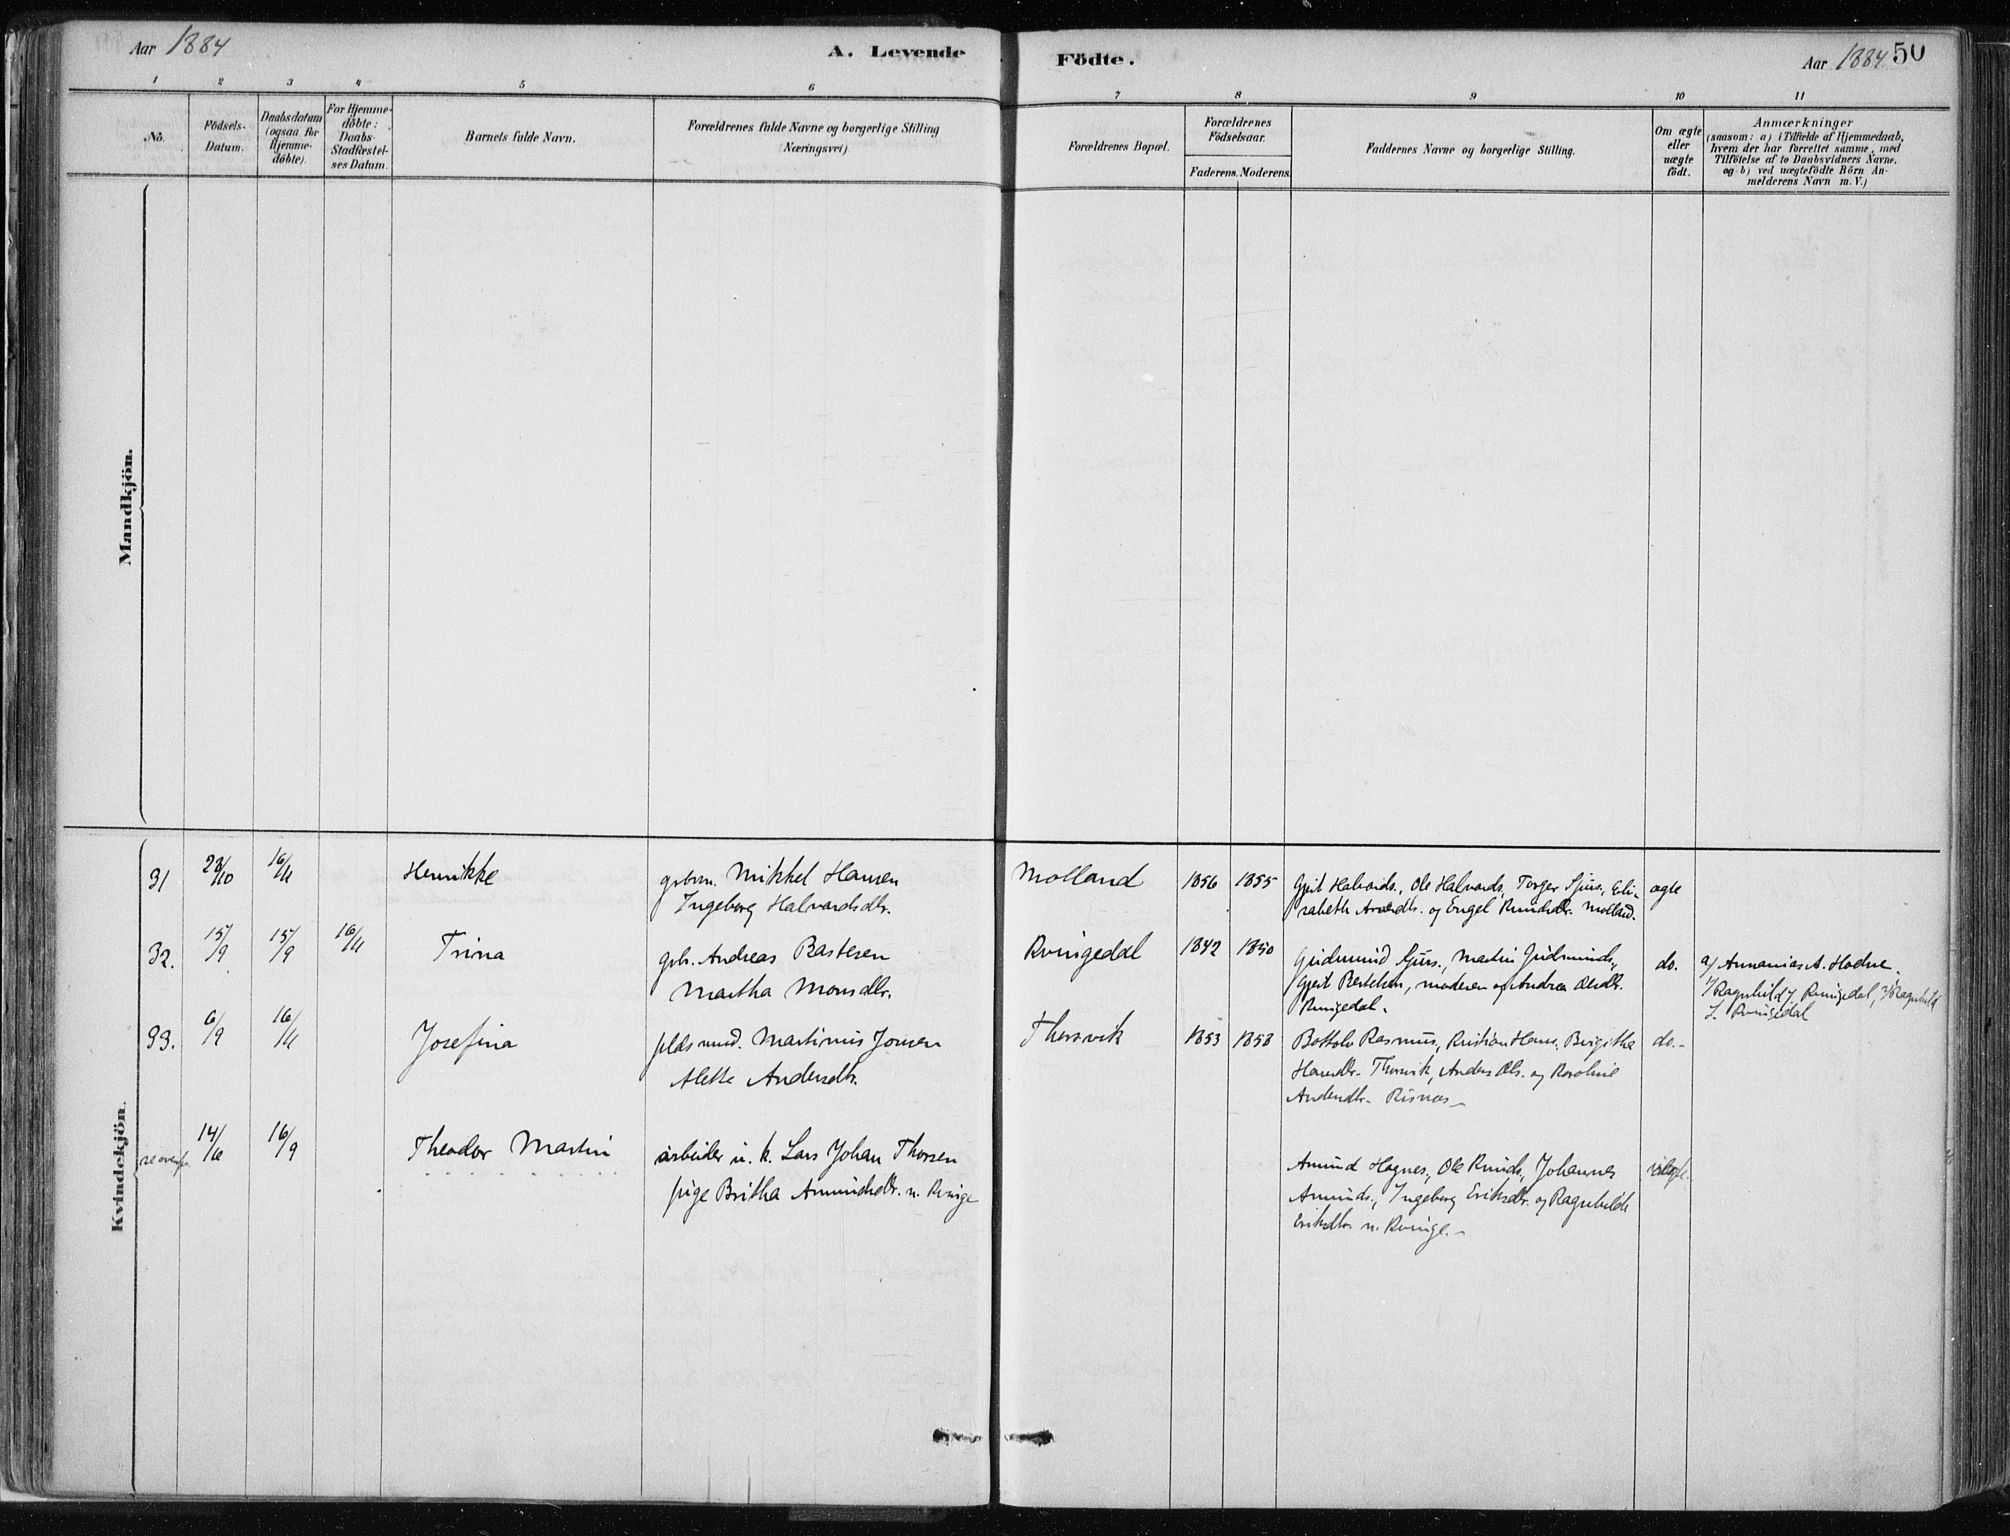 Aar 1884
A. Levende
Födte.
Aar 1884
50
1 2 3 4 5 6 7 8 9 10 11
No.
Födsels-
Datum.
Daabsdatum
(ogsaa for
Hjemme-
døbte).
For Hjemme-
döbte:
Daabs-
Stadfæstel-
ses Datum.
Barnets fulde Navn.
Forældrenes fulde Navne og borgerlige Stilling
(Næringsvei).
Forældrenes Bopæl.
Forældrenes
Födselsaar.
Faderens. Moderens.
Faddernes Navne og borgerlige Stilling.
Om ægte
eller
uægte
födt.
Anmærkninger
(saasom: a) i Tilfælde af Hjemmedaab,
hvem der har forrettet samme, med
Tilföielse af to Daabsvidners Navne.
og b) ved uægtefödte Börn An-
melderens Navn m. V.)
Mandkjön.
Kvindekjön.
31 23/10 16/11 Henrikke
grbrn. Mikkel Hansen
Ingeborg Halvardsdtr.
Molland 1856 1855
Gjert Halvards., Ole Halvards., Torger Sjurs., Eli-
sabeth og Engel Knudsdtr. Molland.
ægte
32. 15/9 15/9 16/11 Trina
grb. Andreas Bastesen
Martha Monsdtr.
Kvingedal 1842 1850
Gudmund Sjurs., Martin Gudmunds.,
Gjert Bertelsen, moderen og Andrea Olsdtr.
Kvingedal.
do.
a/ Annanias A. Hodne.
1/ Ragnhild J. Kvingedal, 2/ Ragnhild
L. Kvingedal
33. 6/9 16/11 Josefina
plds mnd. Martinus Jonsen
Alette Andersdtr.
Thorsvik 1853 1858
Bottolv Rasmus., Kristian Hans., Birgitha
Hansdtr. Thorsvik, Anders Ols. og Karoline
Andersdtr. Risnæs
do.
14/6 16/9 Theodor Martin
arbeider u. k. Lars Johan Thorsen
pige Britha Amundsdtr. n. Kvinge
Amund Hognes., Ole Knuds., Johannes
Amunds., Ingeborg Eriksdtr. og Ragnhilde
Eriksdtr. n. Kvinge.